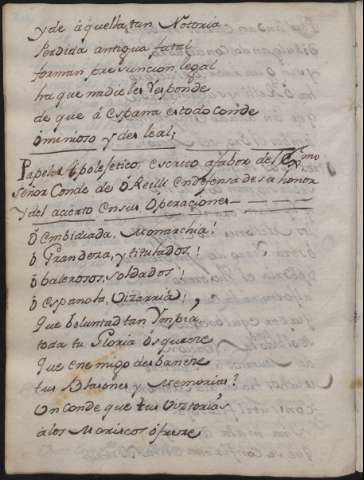 y de àquella tan Notoria
Perdida antigua fatal
forman presuncion legal
ha que nadie les responde
de que à españa es todo conde
òminioso y desleal;
Papeles Apolojetico, escrito afabor del Exmo
señor Conde de òReilli en defensa de su honor
y del acierto en sus òperaciones
ò embidiada, Monarchia!
ò Grandeza, y titulados!
ò balerosos, soldados!
ò española, vizarria!
Que boluntad tan Ympia
toda tu Gloria òscurece
Que enemigo desbanece
tus Blasones y Memorias?
Un conde que tus Victorias
à los Moriscos òfrece